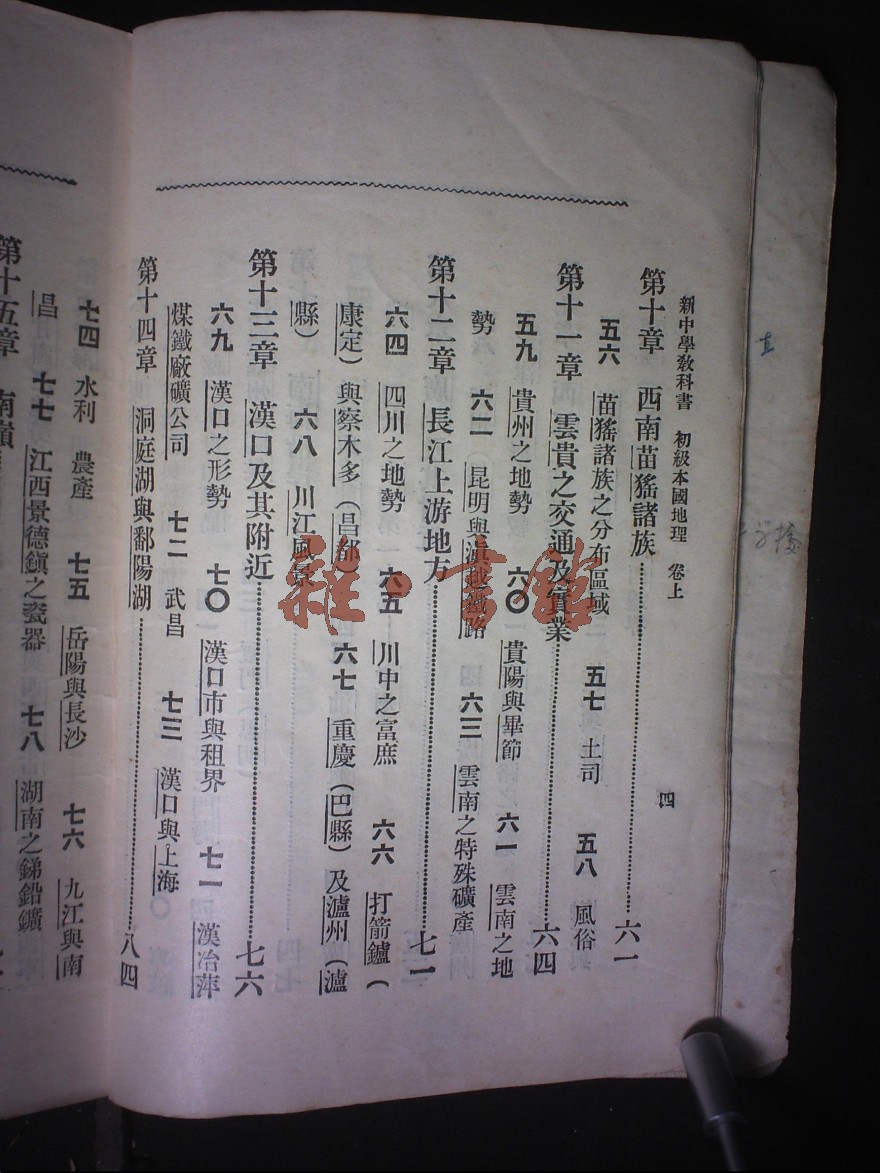 新中學教科書 初級本國地理 卷上 四
第十章 西南苗猺諸族……六一
五六 苗猺諸族之分布區域 五七 土司 五八 風俗
第十一章 雲貴之交通及實業……六四
五九 貴州之地勢 六〇 貴陽與畢節 六一 雲南之地
勢 六二 昆明與滇越鐵路 六三 雲南之特殊礦產
第十二章 長江上游地方……七一
六四 四川之地勢 六五 川中之富庶 六六 打箭鑪(
康定)與察木多(昌都) 六七 重慶(巴縣)及瀘州(瀘
縣) 六八 川江風景
第十三章 漢口及其附近……七六
六九 漢口之形勢 七〇 漢口市與租界 七一 漢冶萍
煤鐵廠礦公司 七二 武昌 七三 漢口與上海
第十四章 洞庭湖與鄱陽湖……八四
七四 水利 農產 七五 岳陽與長沙 七六 九江與南
昌 七七 江西景德鎮之瓷器 七八 湖南之銻鉛鑛
第十五章 南嶺
雜·書館